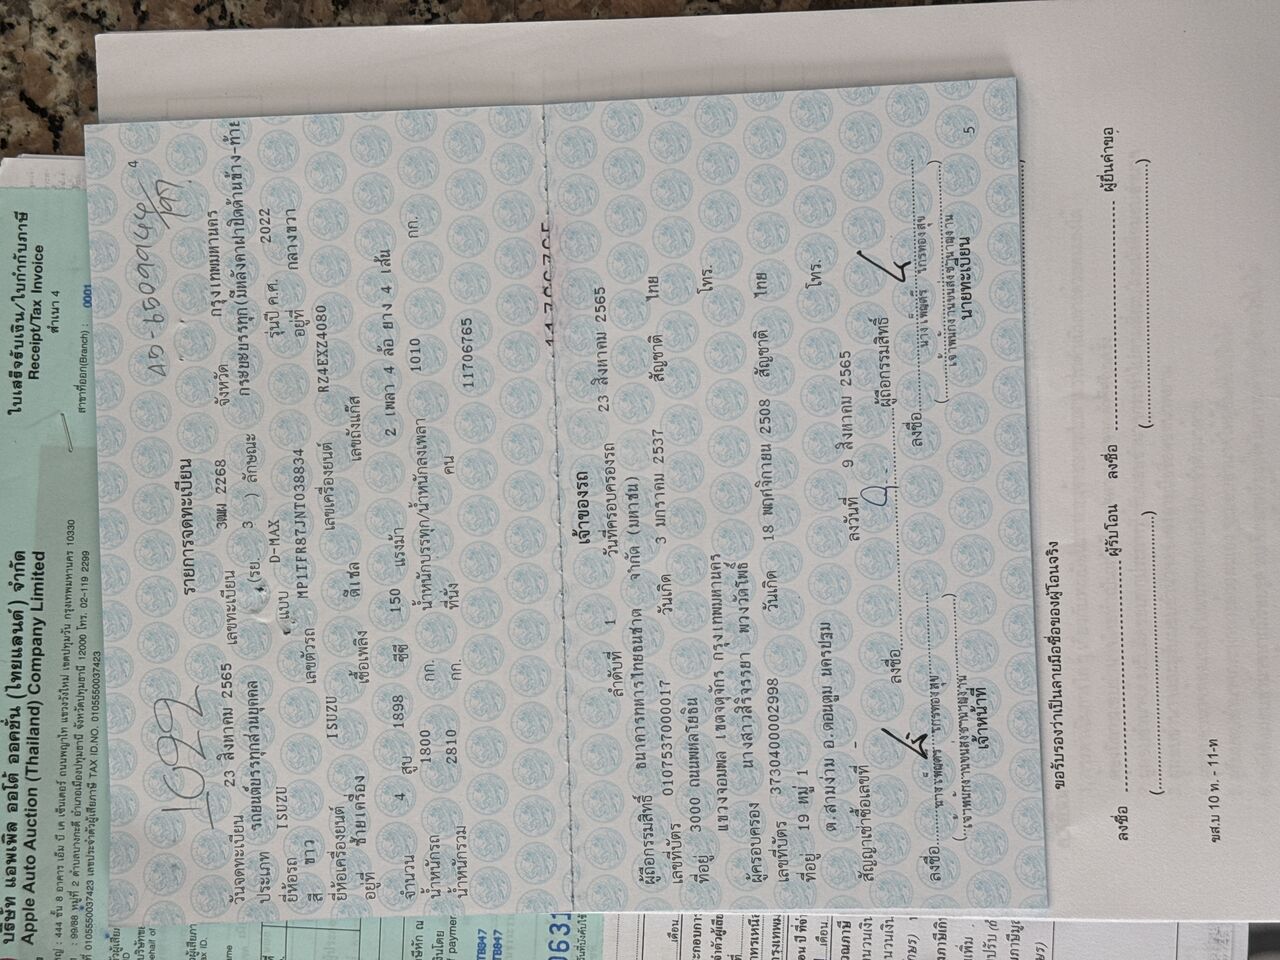 บริษัท แอพเพิล ออโต้ ออคชั่น (ไทยแลนด์) จำกัด
Apple Auto Auction (Thailand) Company Limited
444 ชั้น 8 อาคาร เอ็ม บี เค เซ็นเตอร์ ถนนพญาไท แขวงวังใหม่ เขตปทุมวัน กรุงเทพมหานคร 10330
99/88 หมู่ที่ 2 ตำบลบางกะดี อำเภอเมืองปทุมธานี จังหวัดปทุมธานี 12000 โทร. 02-119 2299
0105550037423 เลขประจำตัวผู้เสียภาษี TAX ID.NO. 0105550037423
ใบเสร็จรับเงิน/ใบกำกับภาษี
Receipt/Tax Invoice
สำเนา 4
สาขาที่ออก(Branch) : 0001
1099
AD-65099944
197
4
รายการจดทะเบียน
วันจดทะเบียน 23 สิงหาคม 2565 เลขทะเบียน 3ฒผ 2268 จังหวัด กรุงเทพมหานคร
ประเภท รถยนต์บรรทุกส่วนบุคคล (รย. 3 ) ลักษณะ กระยะบรรทุก(มีหลังคาฝาปิดด้านข้าง-ท้าย
ยี่ห้อรถ ISUZU แบบ D-MAX รุ่นปี ค.ศ. 2022
สี ขาว เลขตัวรถ MP1TFR87JNT038834 อยู่ที่ กลางขวา
ยี่ห้อเครื่องยนต์ ISUZU เลขเครื่องยนต์ RZ4EXZ4080
อยู่ที่ ซ้ายเครื่อง เชื้อเพลิง ดีเซล เลขถังแก๊ส
จำนวน 4 สูบ 1898 ซีซี 150 แรงม้า 2 เพลา 4 ล้อ ยาง 4 เส้น
น้ำหนักรถ 1800 กก. น้ำหนักบรรทุก/น้ำหนักลงเพลา 1010 กก.
น้ำหนักรวม 2810 กก. ที่นั่ง คน 11706765
เจ้าของรถ
ลำดับที่ 1 วันที่ครอบครองรถ 23 สิงหาคม 2565
ผู้ถือกรรมสิทธิ์ ธนาคารทหารไทยธนชาต จำกัด (มหาชน)
เลขที่บัตร 0107537000017 วันเกิด 3 มกราคม 2537 สัญชาติ ไทย
ที่อยู่ 3000 ถนนพหลโยธิน
แขวงจอมพล เขตจตุจักร กรุงเทพมหานคร โทร.
ผู้ครอบครอง นางสาวสิริจรรยา พวงวัดโพธิ์
เลขที่บัตร 3730400002998 วันเกิด 18 พฤศจิกายน 2508 สัญชาติ ไทย
ที่อยู่ 19 หมู่ 1
ต.สามง่าม อ.ดอนตูม นครปฐม โทร.
สัญญาเช่าซื้อเลขที่ - ลงวันที่ 9 สิงหาคม 2565
ลงชื่อ ผู้ถือกรรมสิทธิ์
ลงชื่อ
เจ้าหน้าที่
ลงชื่อ
นายทะเบียน
5
ขอรับรองว่าเป็นลายมือชื่อของผู้โอนจริง
ลงชื่อ ผู้รับโอน ลงชื่อ ผู้ยื่นคำขอ
ขส.บ 10 ท. - 11-ท